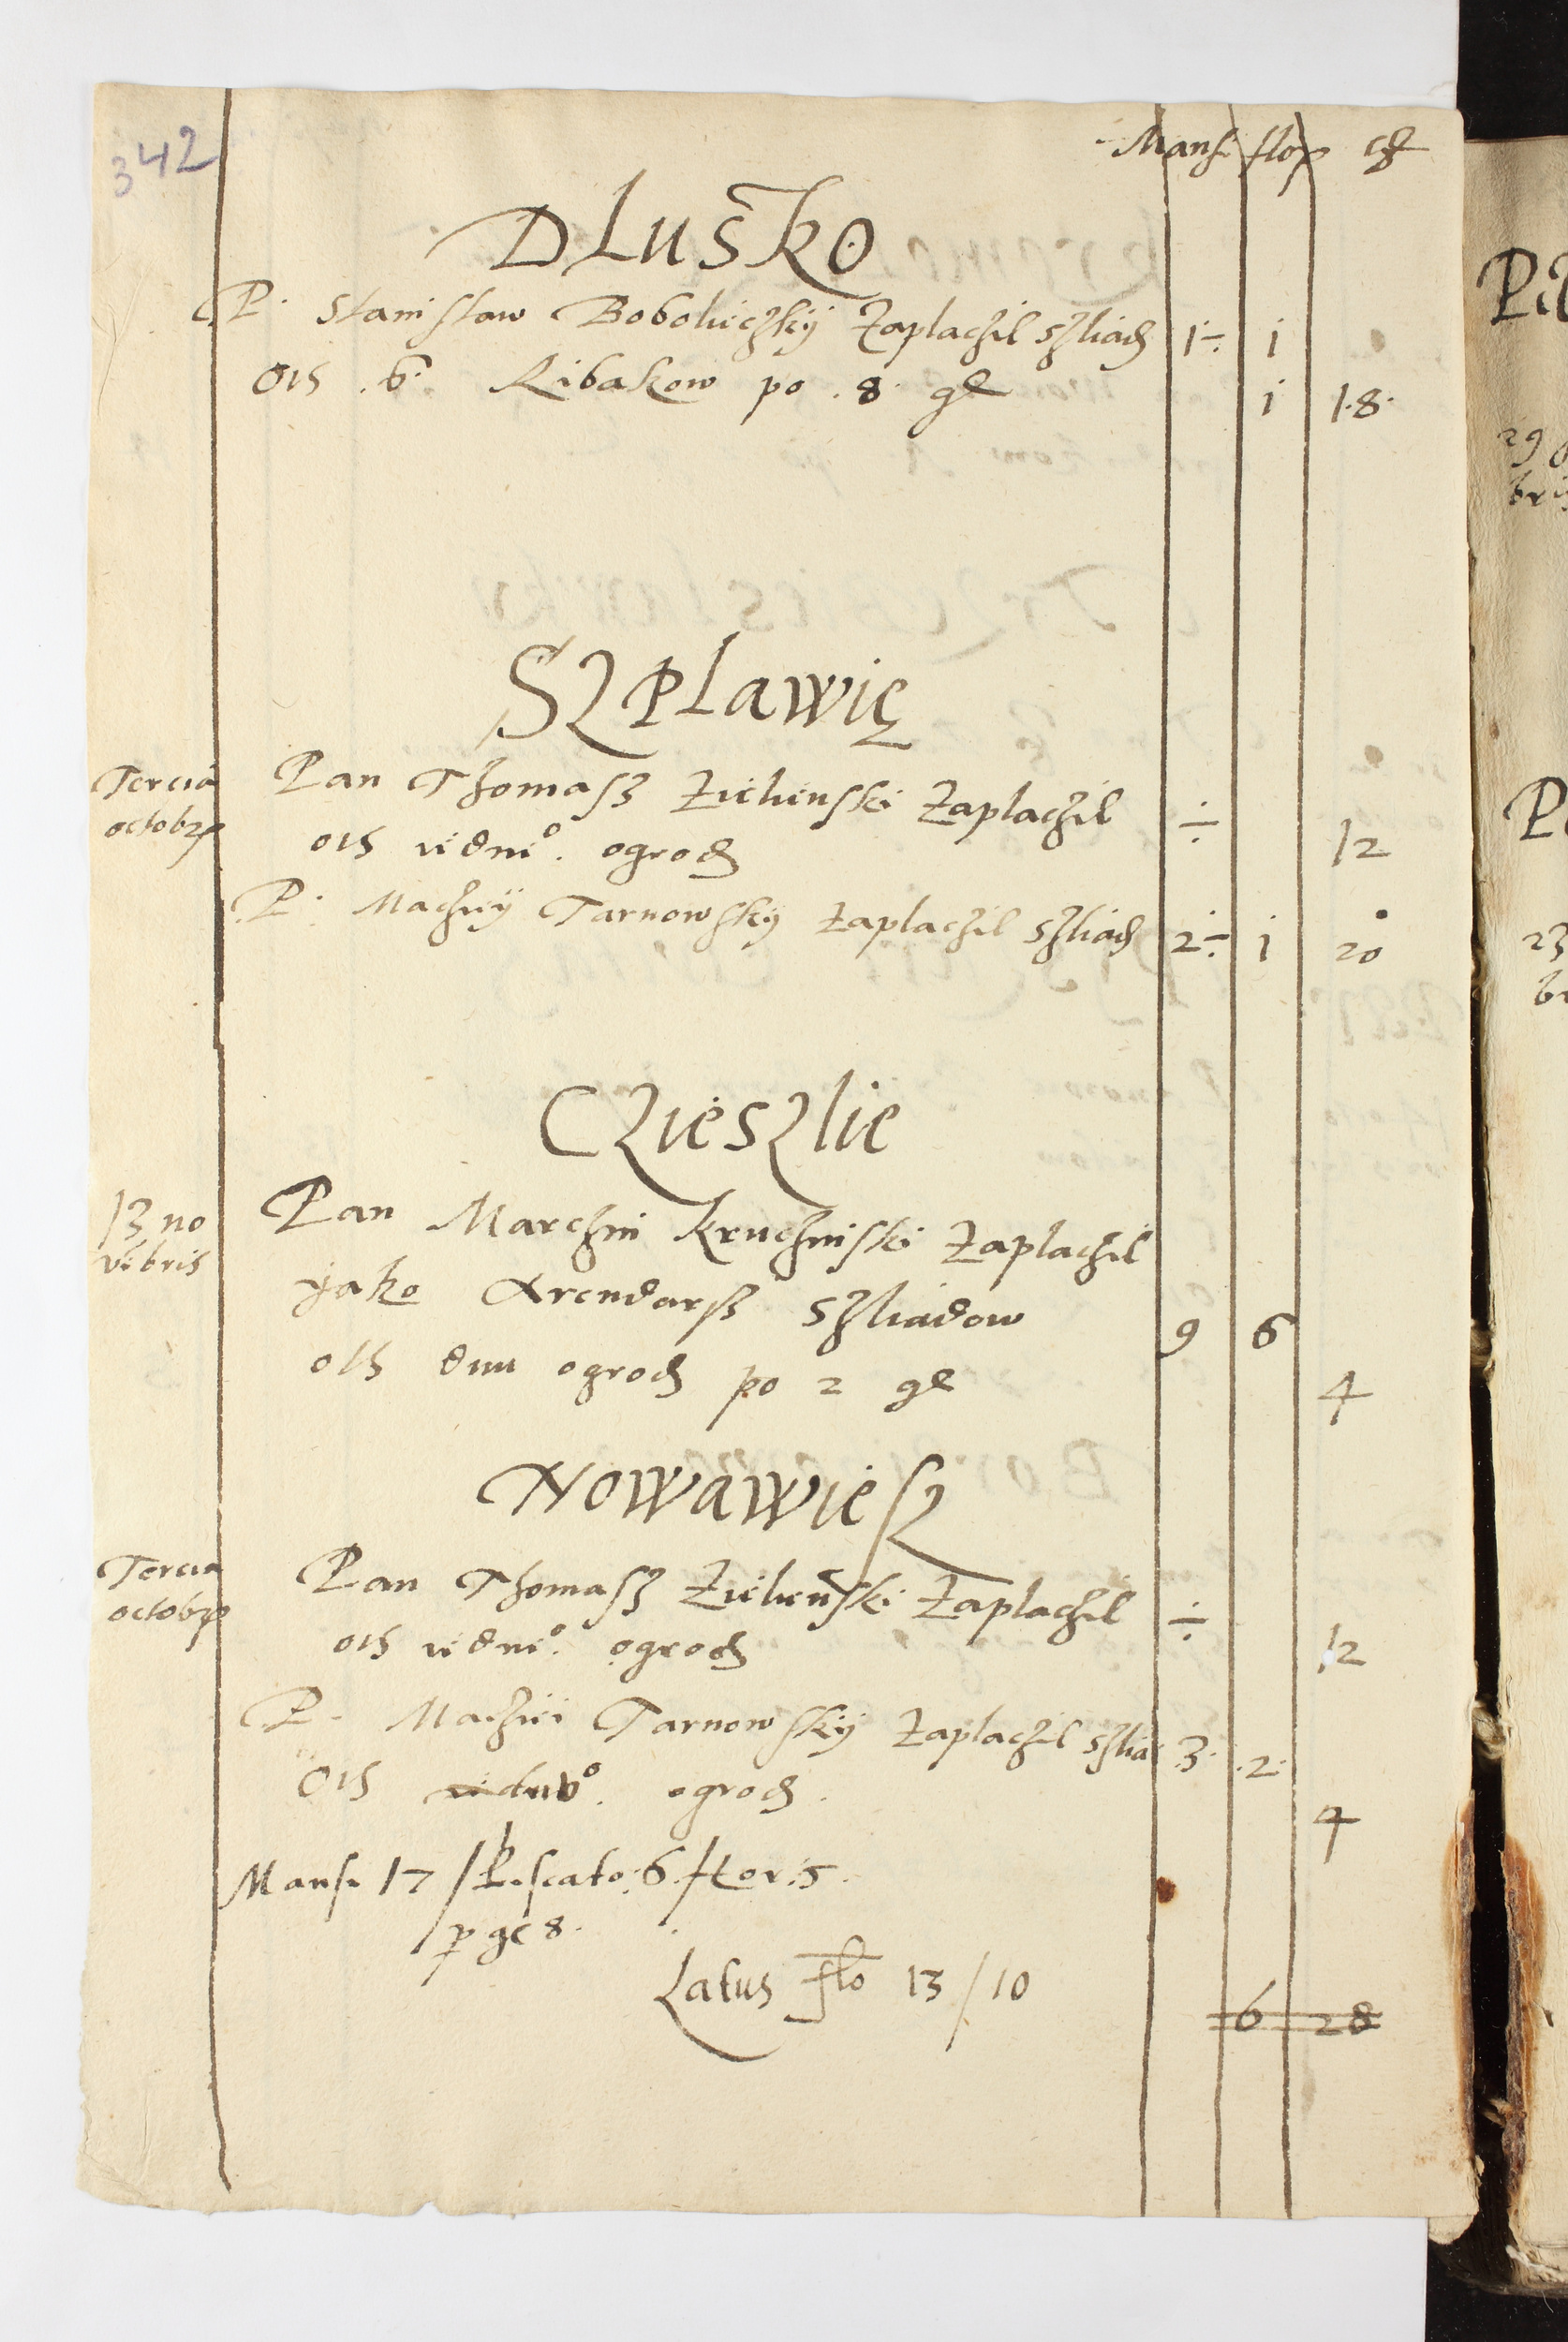 342
Mansi flor gl
Dlusko
P. Stanislaw Boboliczkÿ Zaplaczil szliadz 1÷ i
Otℏ .6. Ribakow po .8. gl i 1.8.
Szplawię
Tercia octobrs
Pan Thomasz Zielienski Zaplaczil ÷ 12
otℏ iedne°. ogrodℏ
P. Macziÿ Tarnowskÿ Zaplaczil szliadℏ 2÷ i 20
Czieszlie
13 no
vebris
Pan Marczin Kruczinski Zaplaczil
ÿako Arendarsz szliadow 9 6
otℏ dwu ogrodℏ po 2 gl 4
Nowawiesz
Tercia octobrs
Pan Thomasz Zielienski Zaplaczil ÷ 12
otℏ iedne°. ogrodℏ
P. Maczieÿ Tarnowskÿ Zaplaczil szlia 3. .2.
Otℏ ogrodℏ. 4
Mansi 17 / Piscato: 6. / Hor: 5.
p gc 8.
Latus flo 13 / 10
6 28